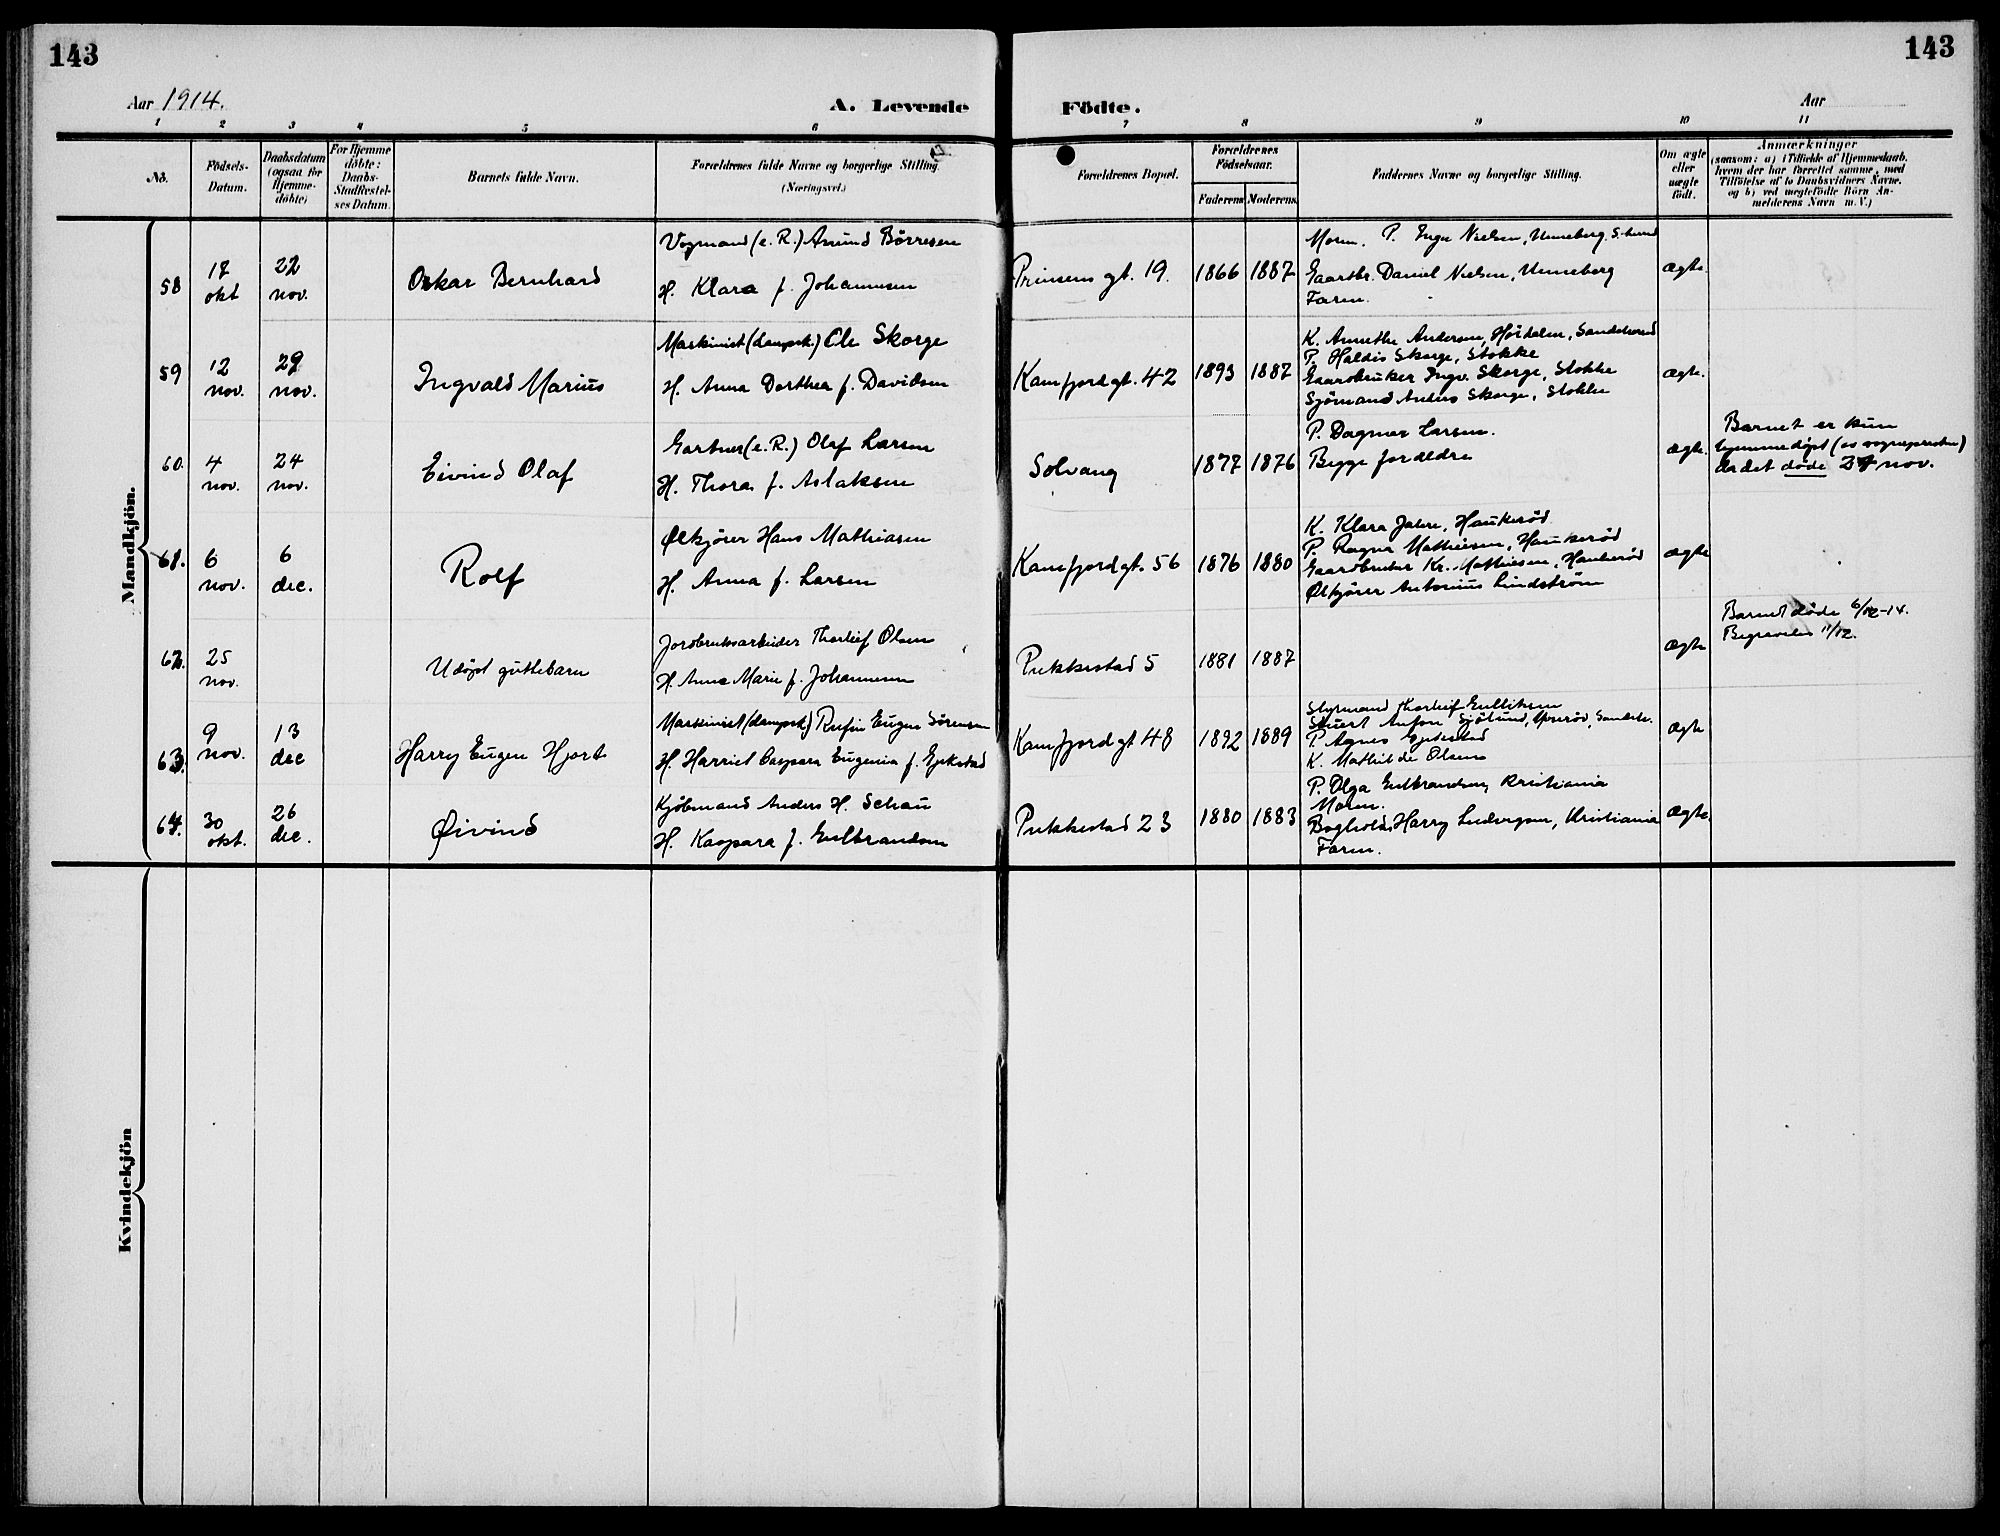 143
143
Aar 1914.
A. Levende Födte.
Aar
1 2 3 4 5 6 7 8 9 10 11
No.
Födsels-Datum.
Daabsdatum (ogsaa for Hjemme-döbte)
For Hjemme döbte: Daabs-Stadfæstel-ses Datum.
Barnets fulde Navn.
Forældrenes fulde Navne og borgerlige Stilling. (Næringsvei.)
Forældrenes Bopæl.
Forældrenes Födselsaar.
Faderens Moderens
Faddernes Navne og borgerlige Stilling.
Om ægte eller uægte födt.
Anmærkninger
(saasom: a) i Tilfælde af Hjemmedaab,
hvem der har forrettet samme, med
Tilföielse af to Daabsvidners Navne,
og b) ved uægtefödte Börn An-
melderens Navn m. V.)
Mandkjön.
58 18 okt 22 nov. Oskar Bernhard
Vognmand (e. R.) Anund Börresen
H. Klara f. Johannesen
Prinsens gt. 19. 1866 1887
Morm. P. Inga Nielsen, Unneberg, S.herred
Gaardbr. Daniel Nielsen, Unneberg
Farm.
ægte.
59 12 nov. 29 nov. Ingvald Marius
Maskinist (dampsk.) Ole Skorge
H. Anna Dorthea f. Davidsen
Kamfjordgt. 42 1893 1887
K. Annethe Andersen, Sandeherred
P. Haldis Skorge, Stokke
Gaardbruker Ingv. Skorge, Stokke
Sjömand Anders Skorge, Stokke
ægte.
60. 4 nov. 24 nov. Eivind Olaf
Gartner (e. R.) Olaf Larsen
H. Thora f. Aslaksen
Solvang 1877 1876
P. Dagmar Larsen.
Begge forældre
ægte.
Barnet er kun
hjemmedøpt (av sognepresten)
da det døde 24 nov.
61. 6 nov. 6 dec. Rolf
Ølkjører Hans Mathiasen
H. Anna f. Larsen
Kamfjordgt. 56 1876 1880
K. Klara Jahre, Haukerød
P. Ragna Mathiesen, Haukerød
Gaardbruker Kr. Mathiesen, Haukerød
Ølkjører Antonius Lindstrøm
ægte
62. 25 nov. Udøpt guttebarn
Jordbruksarbeider Thorleif Olsen
H. Anna Marie f. Johannesen
Pukkestad 5 1881 1887
ægte
Barnet døde 6/12-14.
Begravedes 11/12.
63. 9 nov. 13 dec Harry Eugen Hjort
Maskinist (dampsk.) Rufin Eugen Sørensen
H. Harriet Caspara Eugenia f. Gjekstad
Kamfjordgt 48 1892 1889
Styrmand Thorleif Gulliksen
Stuert Anton Sjölund,
P. Agnes Gjekstad
K. Mathilde Olsen
ægte
64. 30 okt. 26 dec. Øivind
Kjöbmand Anders H. Schau
H. Kaspara f. Gulbrandsen
Pukkestad 23 1880 1883
P. Olga Gulbrandsen, Kristiania
Morm.
Bogholder Harry Ludvigsen, Kristiania
Farm.
ægte.
Kvindekjön